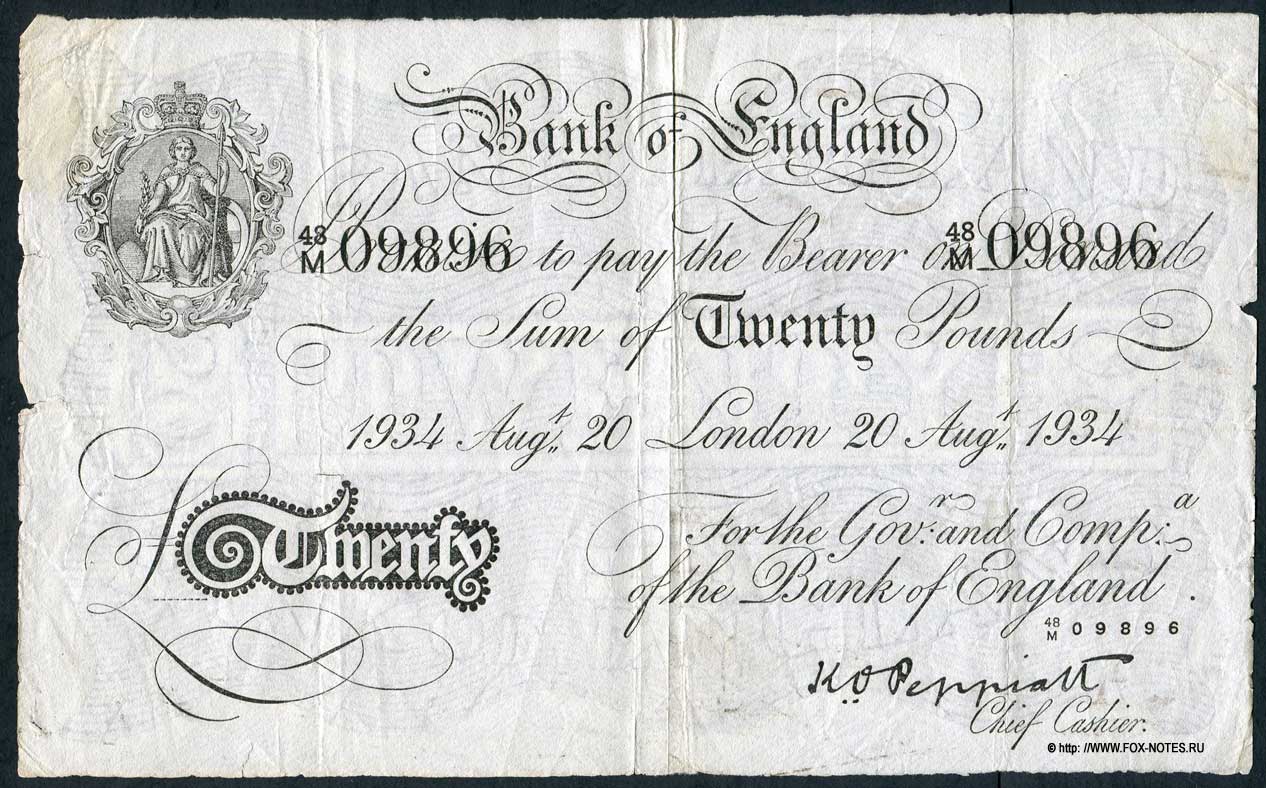 Bank of England
48/M 09896 to pay the Bearer on Demand 48/M 09896
the Sum of Twenty Pounds
1934 Augt 20 London 20 Augt 1934
£ Twenty
For the Govr: and Compa:
of the Bank of England.
48/M 09896
K O Peppiatt
Chief Cashier.
© http: //WWW.FOX-NOTES.RU